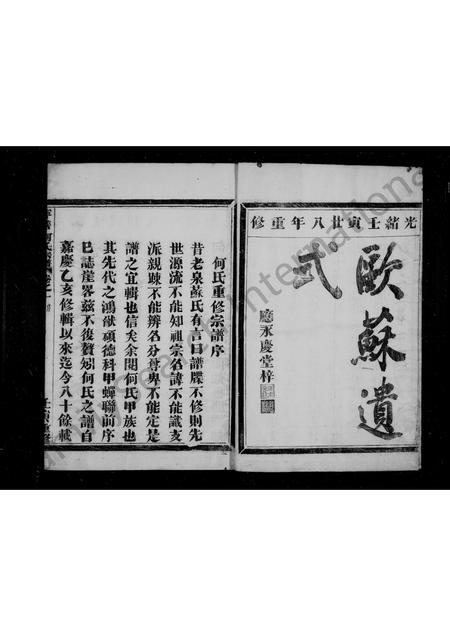 光緒壬寅廿八年重修
歐蘇遺
式
廳永慶堂梓
何氏重修宗譜序
昔老泉蘇氏有言曰譜牒不修則先
世源流不能知祖宗名諱不能識支
派親疎不能辨名分尊卑不能定是
譜之宜輯也信矣余閱何氏甲族也
其先代之鴻猷碩德科甲蟬聯前序
已誌崖畧茲不復贅矧何氏之譜自
嘉慶乙亥修輯以來迄今八十餘載
International